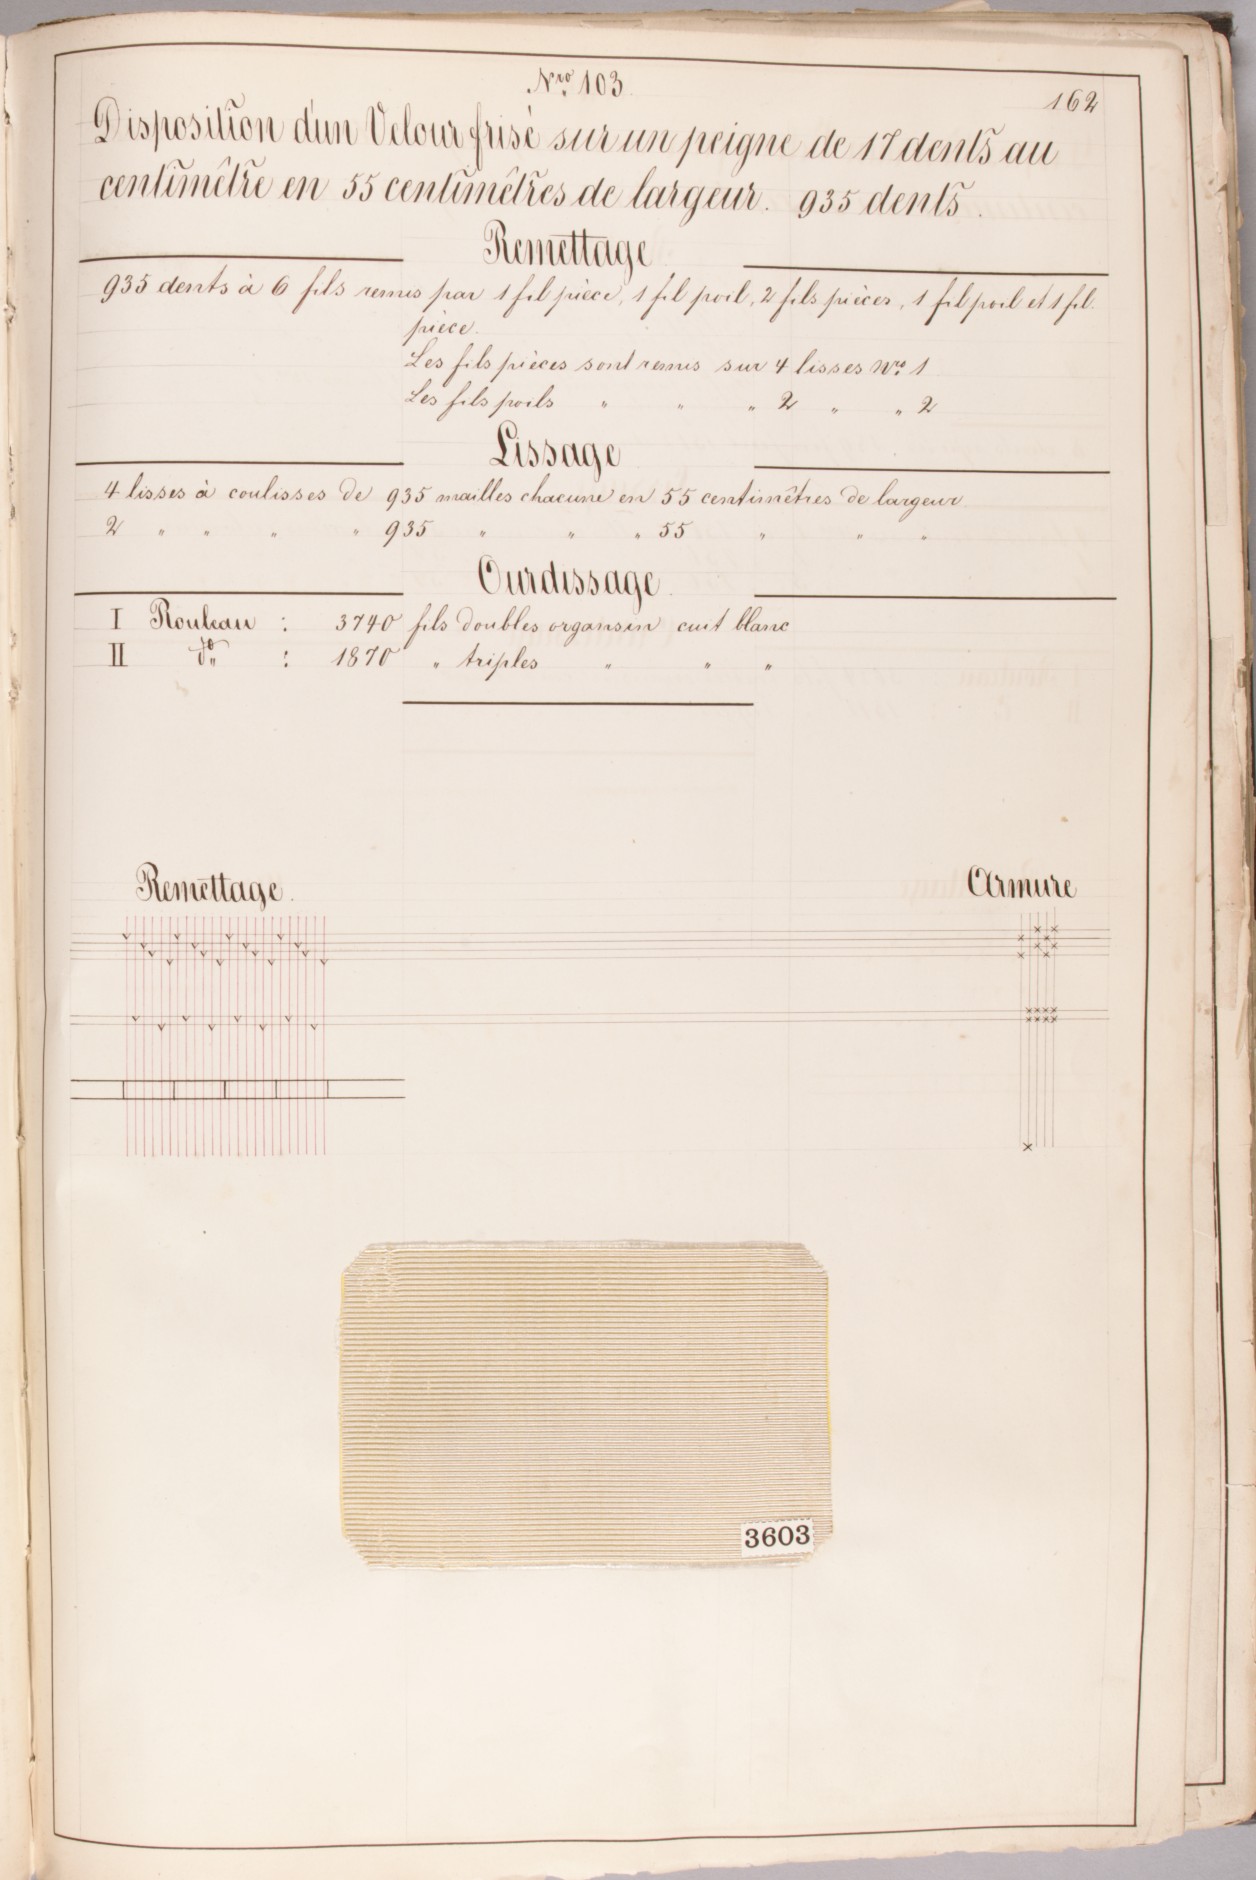 Nro 103
162
Disposition d'un Velour frisé sur un peigne de 17 dents au
centimêtre en 55 centimêtres de largeur. 935 dents.
Remettage
935 dents à 6 fils remis par 1 fil pièce, 1 fil poil, 2 fils pièces, 1 fil poil et 1 fil
pièce.
Les fils pièces sont remis sur 4 lisses Nro 1
Les fils poils " " " 2 " " 2
Lissage
4 lisses à coulisses de 935 mailles chacune en 55 centimêtres de largeur
2 " " " " 935 " " " 55 " " "
Ourdissage
I Rouleau : 3740 fils doubles organsin cuit blanc
II do : 1870 " triples " " "
Remettage.
Armure
3603